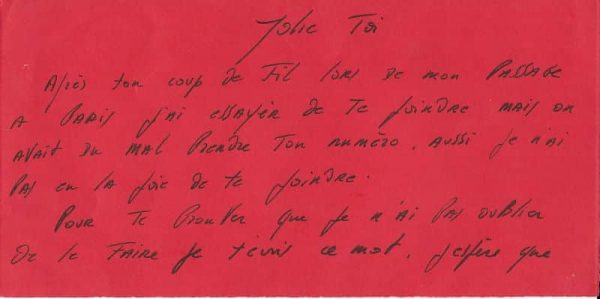 Jolie Toi
Après ton coup de fil lors de mon passage
a Paris j'ai essayer de te joindre mais on
avait du mal prendre ton numéro. aussi je n'ai
pas eu la joie de te joindre.
Pour te prouver que je n'ai pas oublier
de le faire je t'écris ce mot. j'espère que